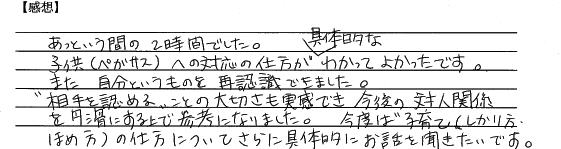 【感想】
あっという間の2時間でした。 具体的な
子供(ペガサス)への対応の仕方がわかってよかったです。
また自分というものを再認識できました。
"相手を認める"ことの大切さも実感でき今後の対人関係
を円滑にする上で参考になりました。 今度は"子育て(しかり方・
ほめ方)の仕方についてさらに具体的にお話を聞きたいです。